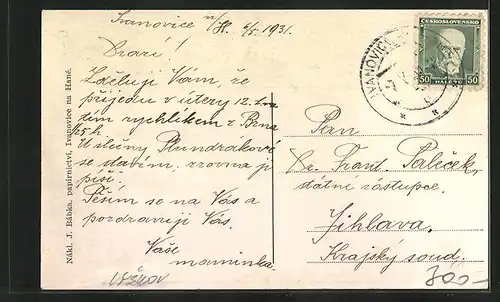 Ivanovice n/H. 6/5 1931.
Drazí!
Sděluji Vám, že
přijedu v úterý 12. t.m.
tím rychlíkem z Brna
15 h
U slečny Plundrakové
se stavím. zrovna jí
píši.
Těším se na Vás a
pozdravuji Vás.
Vaše
maminka.
LEŽKOV
Nákl. J. Bábka, papírnictví, Ivanovice na Hané.
ČESKOSLOVENSKO
50 HALÉŘŮ 50
IVANOVICE
Pan
Dr. Frant. Paleček,
státní zástupce.
Jihlava.
Krajský soud.
300-